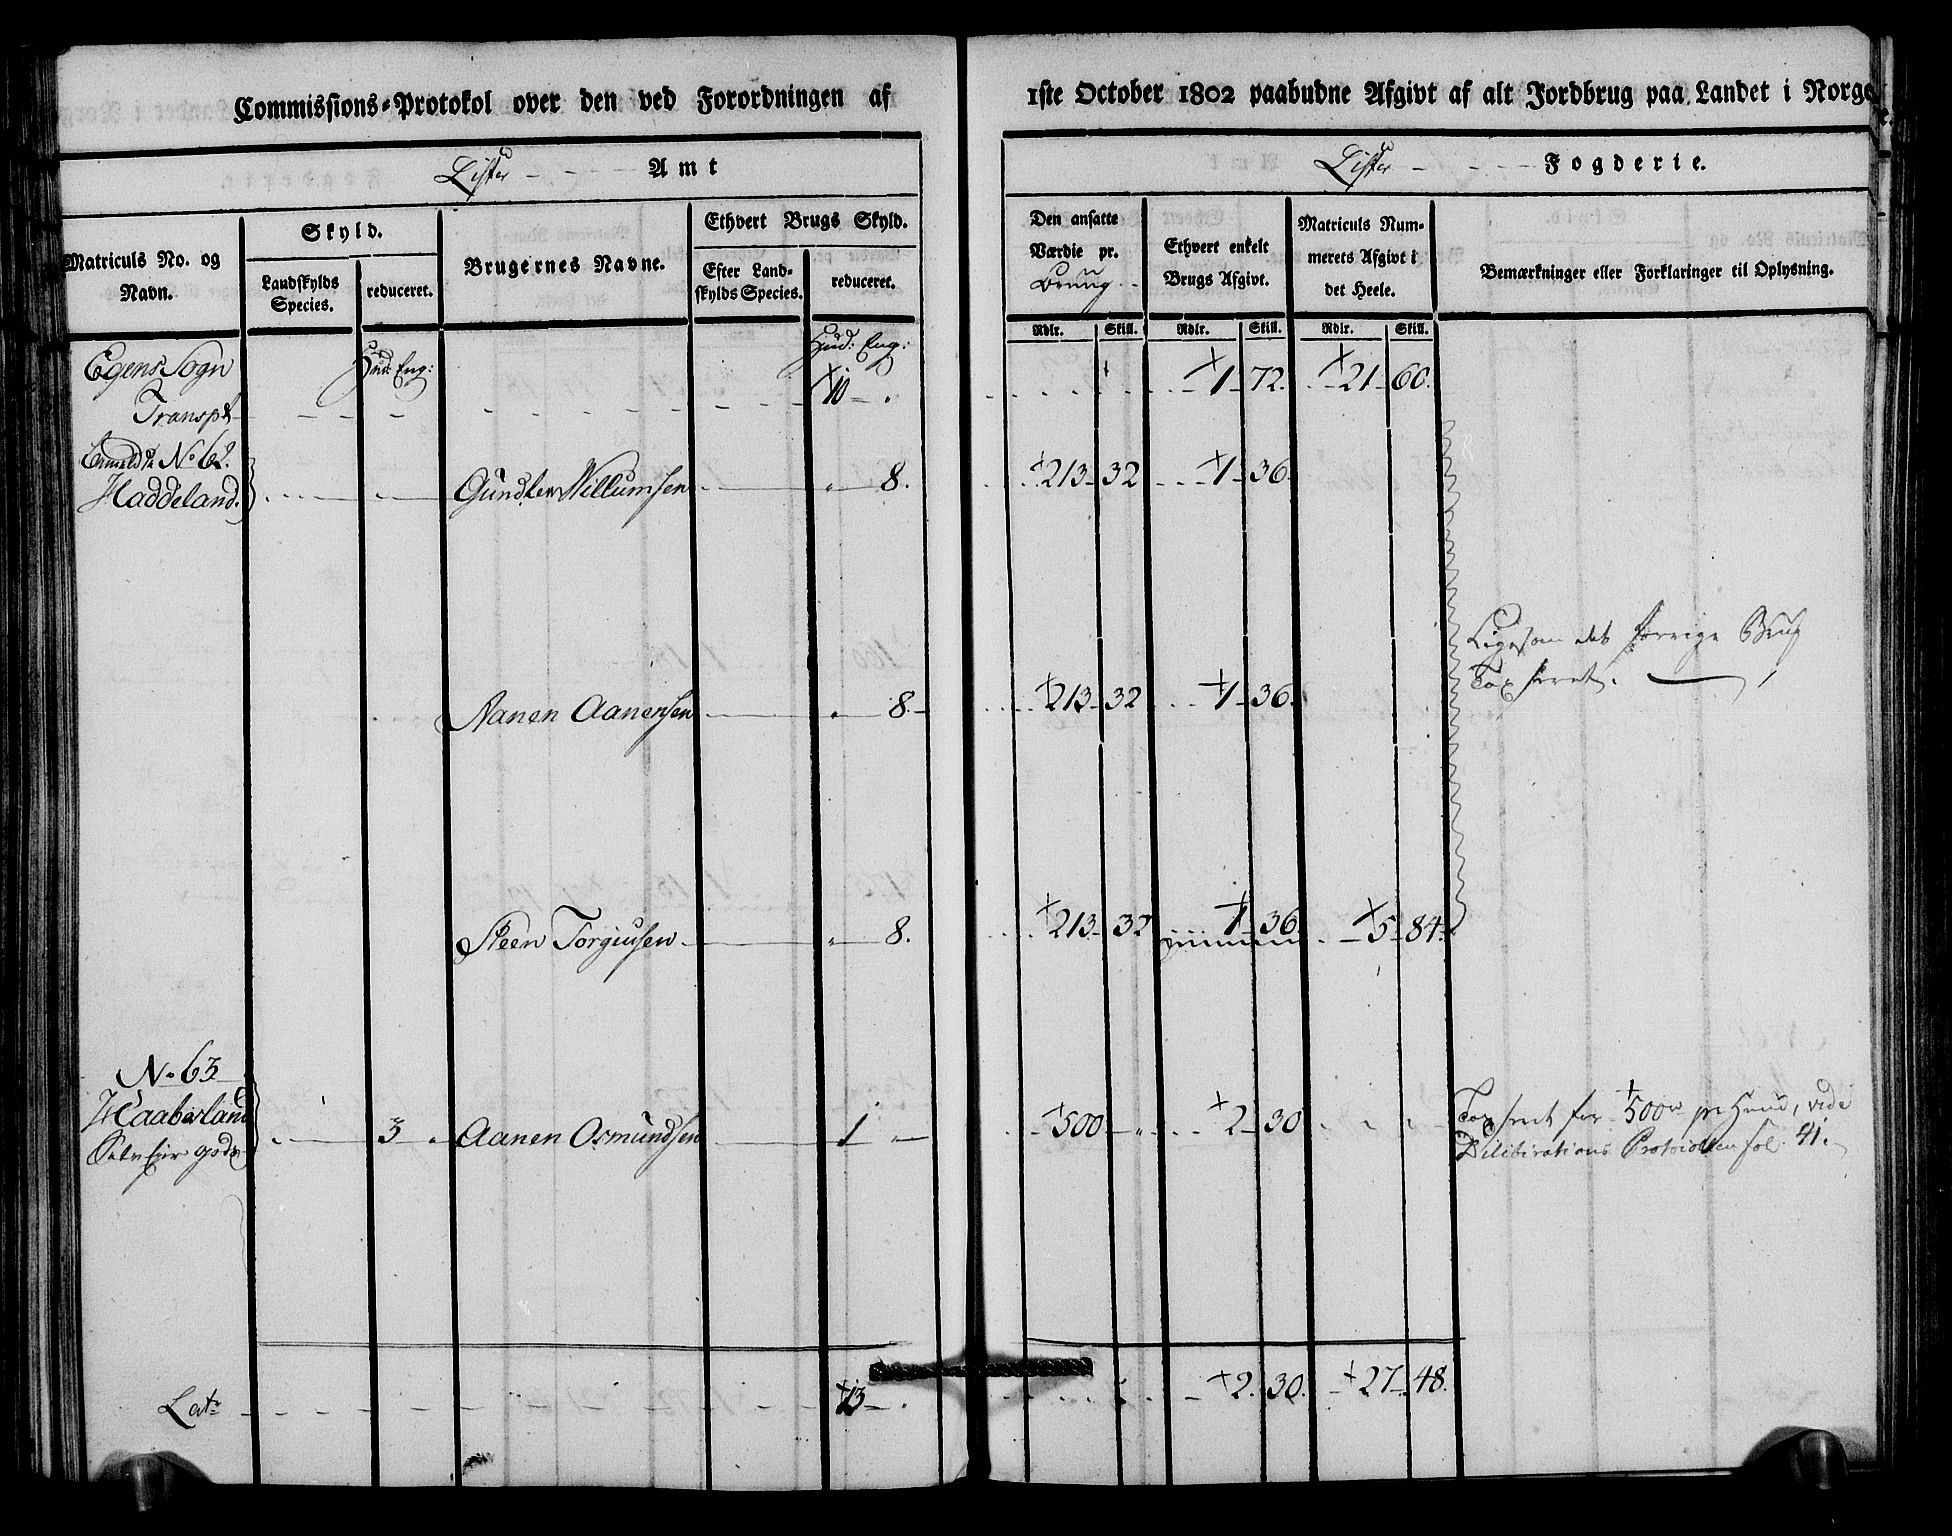 Commissions-Protokol over den ved Forordningen af
1ste October 1802 paabudne Afgivt af alt Jordbrug paa Landet i Norge
Lister Amt
Lister Fogderie.
Matriculs No. og Navn.
Skyld.
Landskylds Species.
reduceret.
Brugernes Navne.
Ethvert Brugs Skyld.
Efter Landskylds Species.
reduceret.
Den ansatte Værdie pr. Brug
Ethvert enkelt Brugs Afgivt.
Matriculs Nummerets Afgivt i det Heele.
Bemærkninger eller Forklaringer til Oplysning.
Rdlr. Skill. Rdlr. Skill. Rdlr. Skill.
Egens Sogn Hud: Eng: Hud: Eng:
Transpt 10 1 72. 21 60.
No 62.
Haddeland. Gundler Willumsen 8. 213 32 1 36.
Ligesom det forrige Brug
Taxseret.
Aanen Aanensen 8. 213 32 1 36.
Steen Torgiusen 8. 213 32 1 36 5 84.
No 63
Haaberland 3 Aanen Osmundsen 1 500 2 30 Taxseret for 500 pr Huud, vide
Delibirations Protocollen fol. 41.
Lat. 13 2. 30. 27 48.